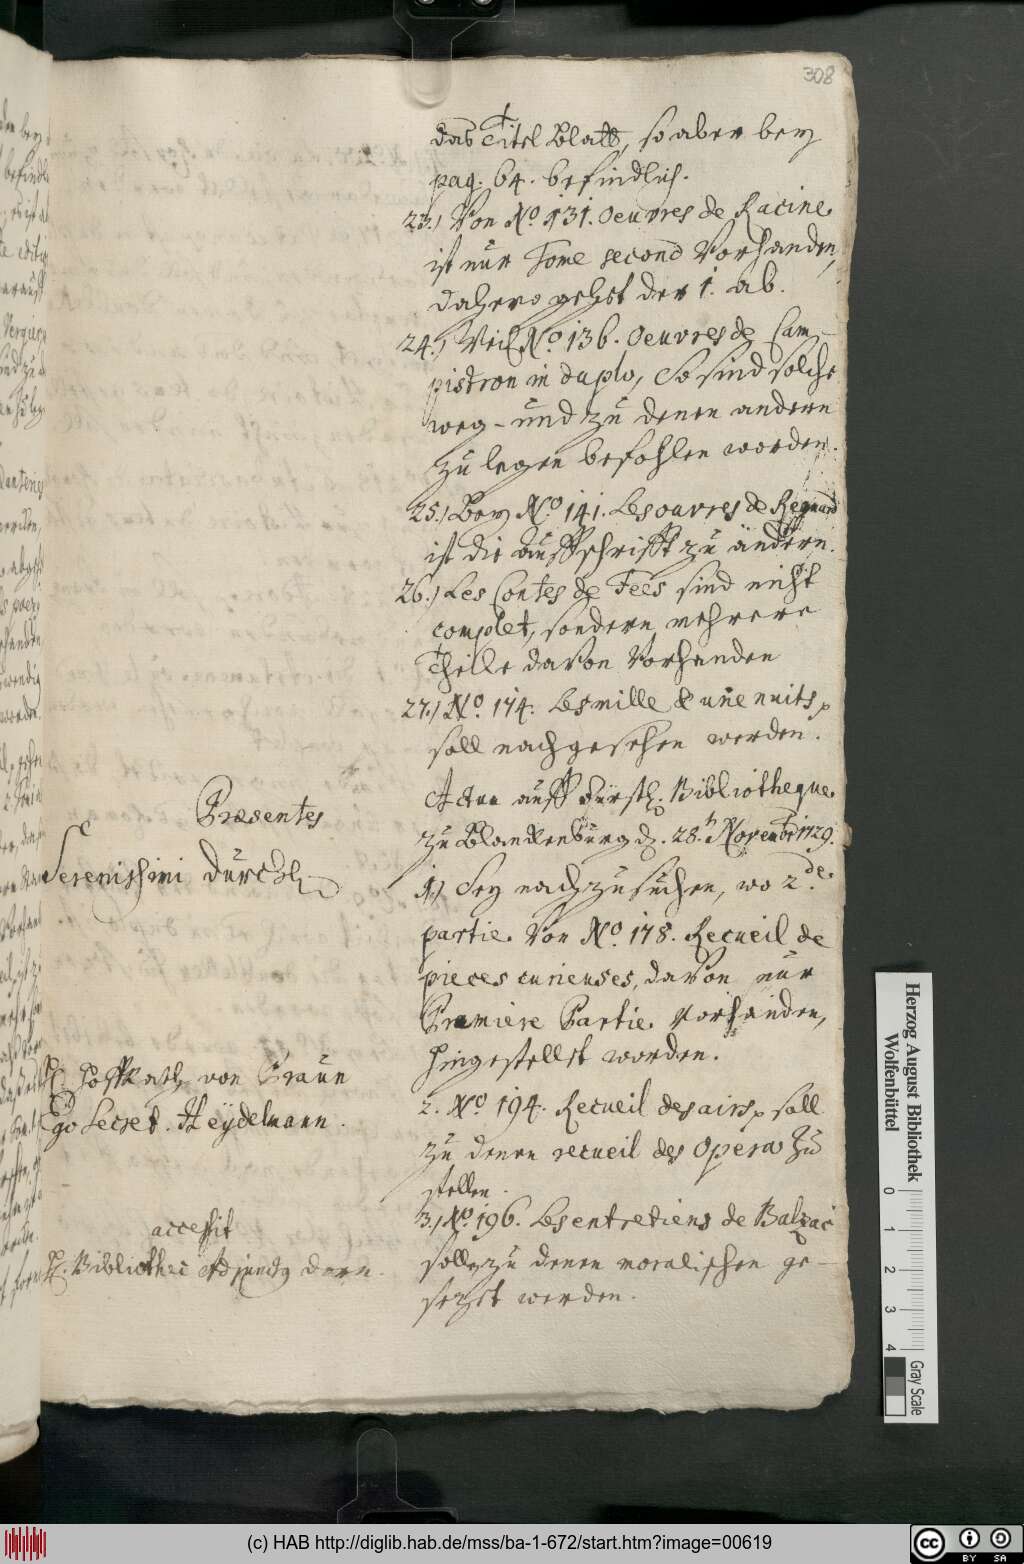 308
das Titel Blatt, so aber bey
pag. 64. befindlich.
23.) Von No. 131. Oeuvres de Racine
ist nur Tome second vorhanden,
dahero gehet der 1. ab.
24.) Weil No. 136. Oeuvres de Cam-
pistron in duplo, so sind solche
weg- und zu denen andern
zu legen befohlen worden.
25.) Bey No. 141. Les ouvres de Regnard
ist die Auffschrifft zu ändern.
26.) Les Contes de Fees sind nicht
complet, sondern mehrere
Theile davon vorhanden
27.) No. 174. Les mille & une nuits
soll nachgesehen werden.
Actum auff Fürstl. Bibliotheque
zu Blanckenburg d. 28. Novembr 1729.
Præsentes
Serenissimi Durchl.
1.) Sey nachzusuchen, wo 2de
partie von No. 178. Recueil de
pieces curieuses, davon nur
Premiere Partie vorhanden,
hingestellet worden.
H. Hoffrath von Praun
Ego Secret. Heÿdelmann.
2. No. 194. Recueil des airs soll
zu denen recueil des Opera zu
stellen.
accessit
H. Bibliothec Adjunctq Dorn.
3.) No. 196. Les entretiens de Balzac
soll zu denen moralischen ge-
sezet werden.
Herzog August Bibliothek
Wolfenbüttel
0 1 2 3 4
Gray Scale
(c) HAB http://diglib.hab.de/mss/ba-1-672/start.htm?image=00619
cc BY SA